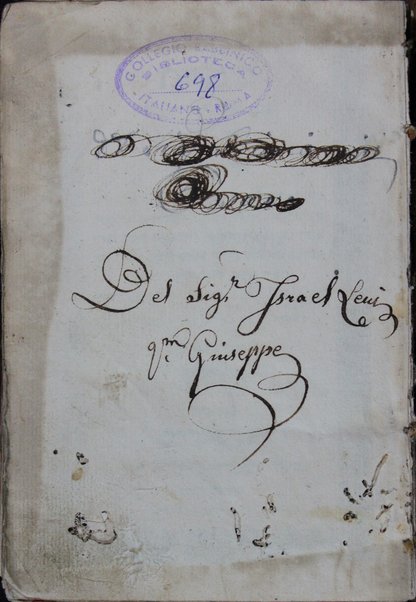 COLLEGIO RABBINICO
BIBLIOTECA
698
ITALIANO
Del Sigr Israel Levi
qm Giuseppe